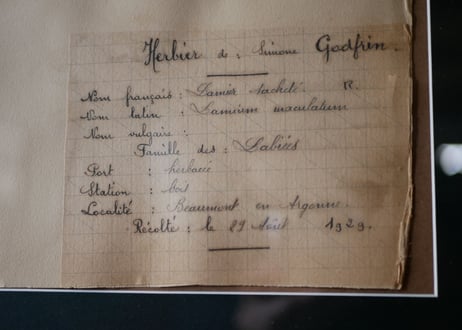 Herbier de : Simone Godfrin.
Nom français : Lamier tacheté. R.
Nom latin : Lamium maculatum
Nom vulgaire :
Famille des : Labiées
Port : herbacé
Station : bois
Localité : Beaumont en Argonne.
Récolté : le 27 Août 1929.